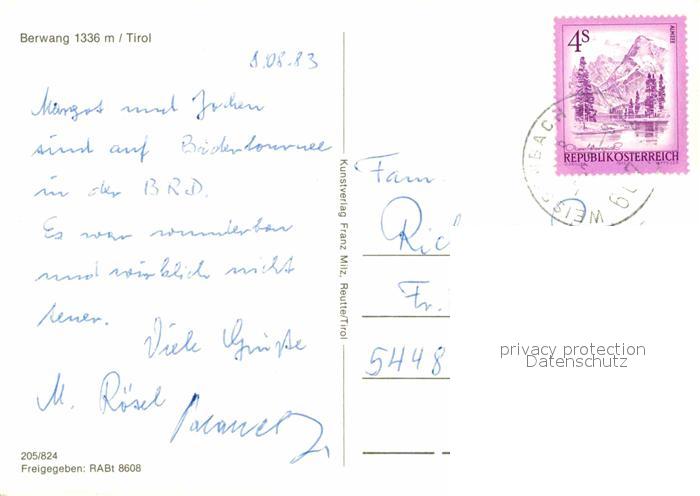 Berwang 1336 m / Tirol
8.08.83
Margot und Jochen
sind auf Bädertournee
in der BRD.
Es war wunderbar
und wirklich nicht
teuer.
Viele Grüße
M. Rösel
205/824
Freigegeben: RABt 8608
Kunstverlag Franz Milz, Reutte/Tirol
4S
ALMSEE
REPUBLIK ÖSTERREICH
WEISS NBACH
Fam.
Ric
Fr.
5448
privacy protection
Datenschutz